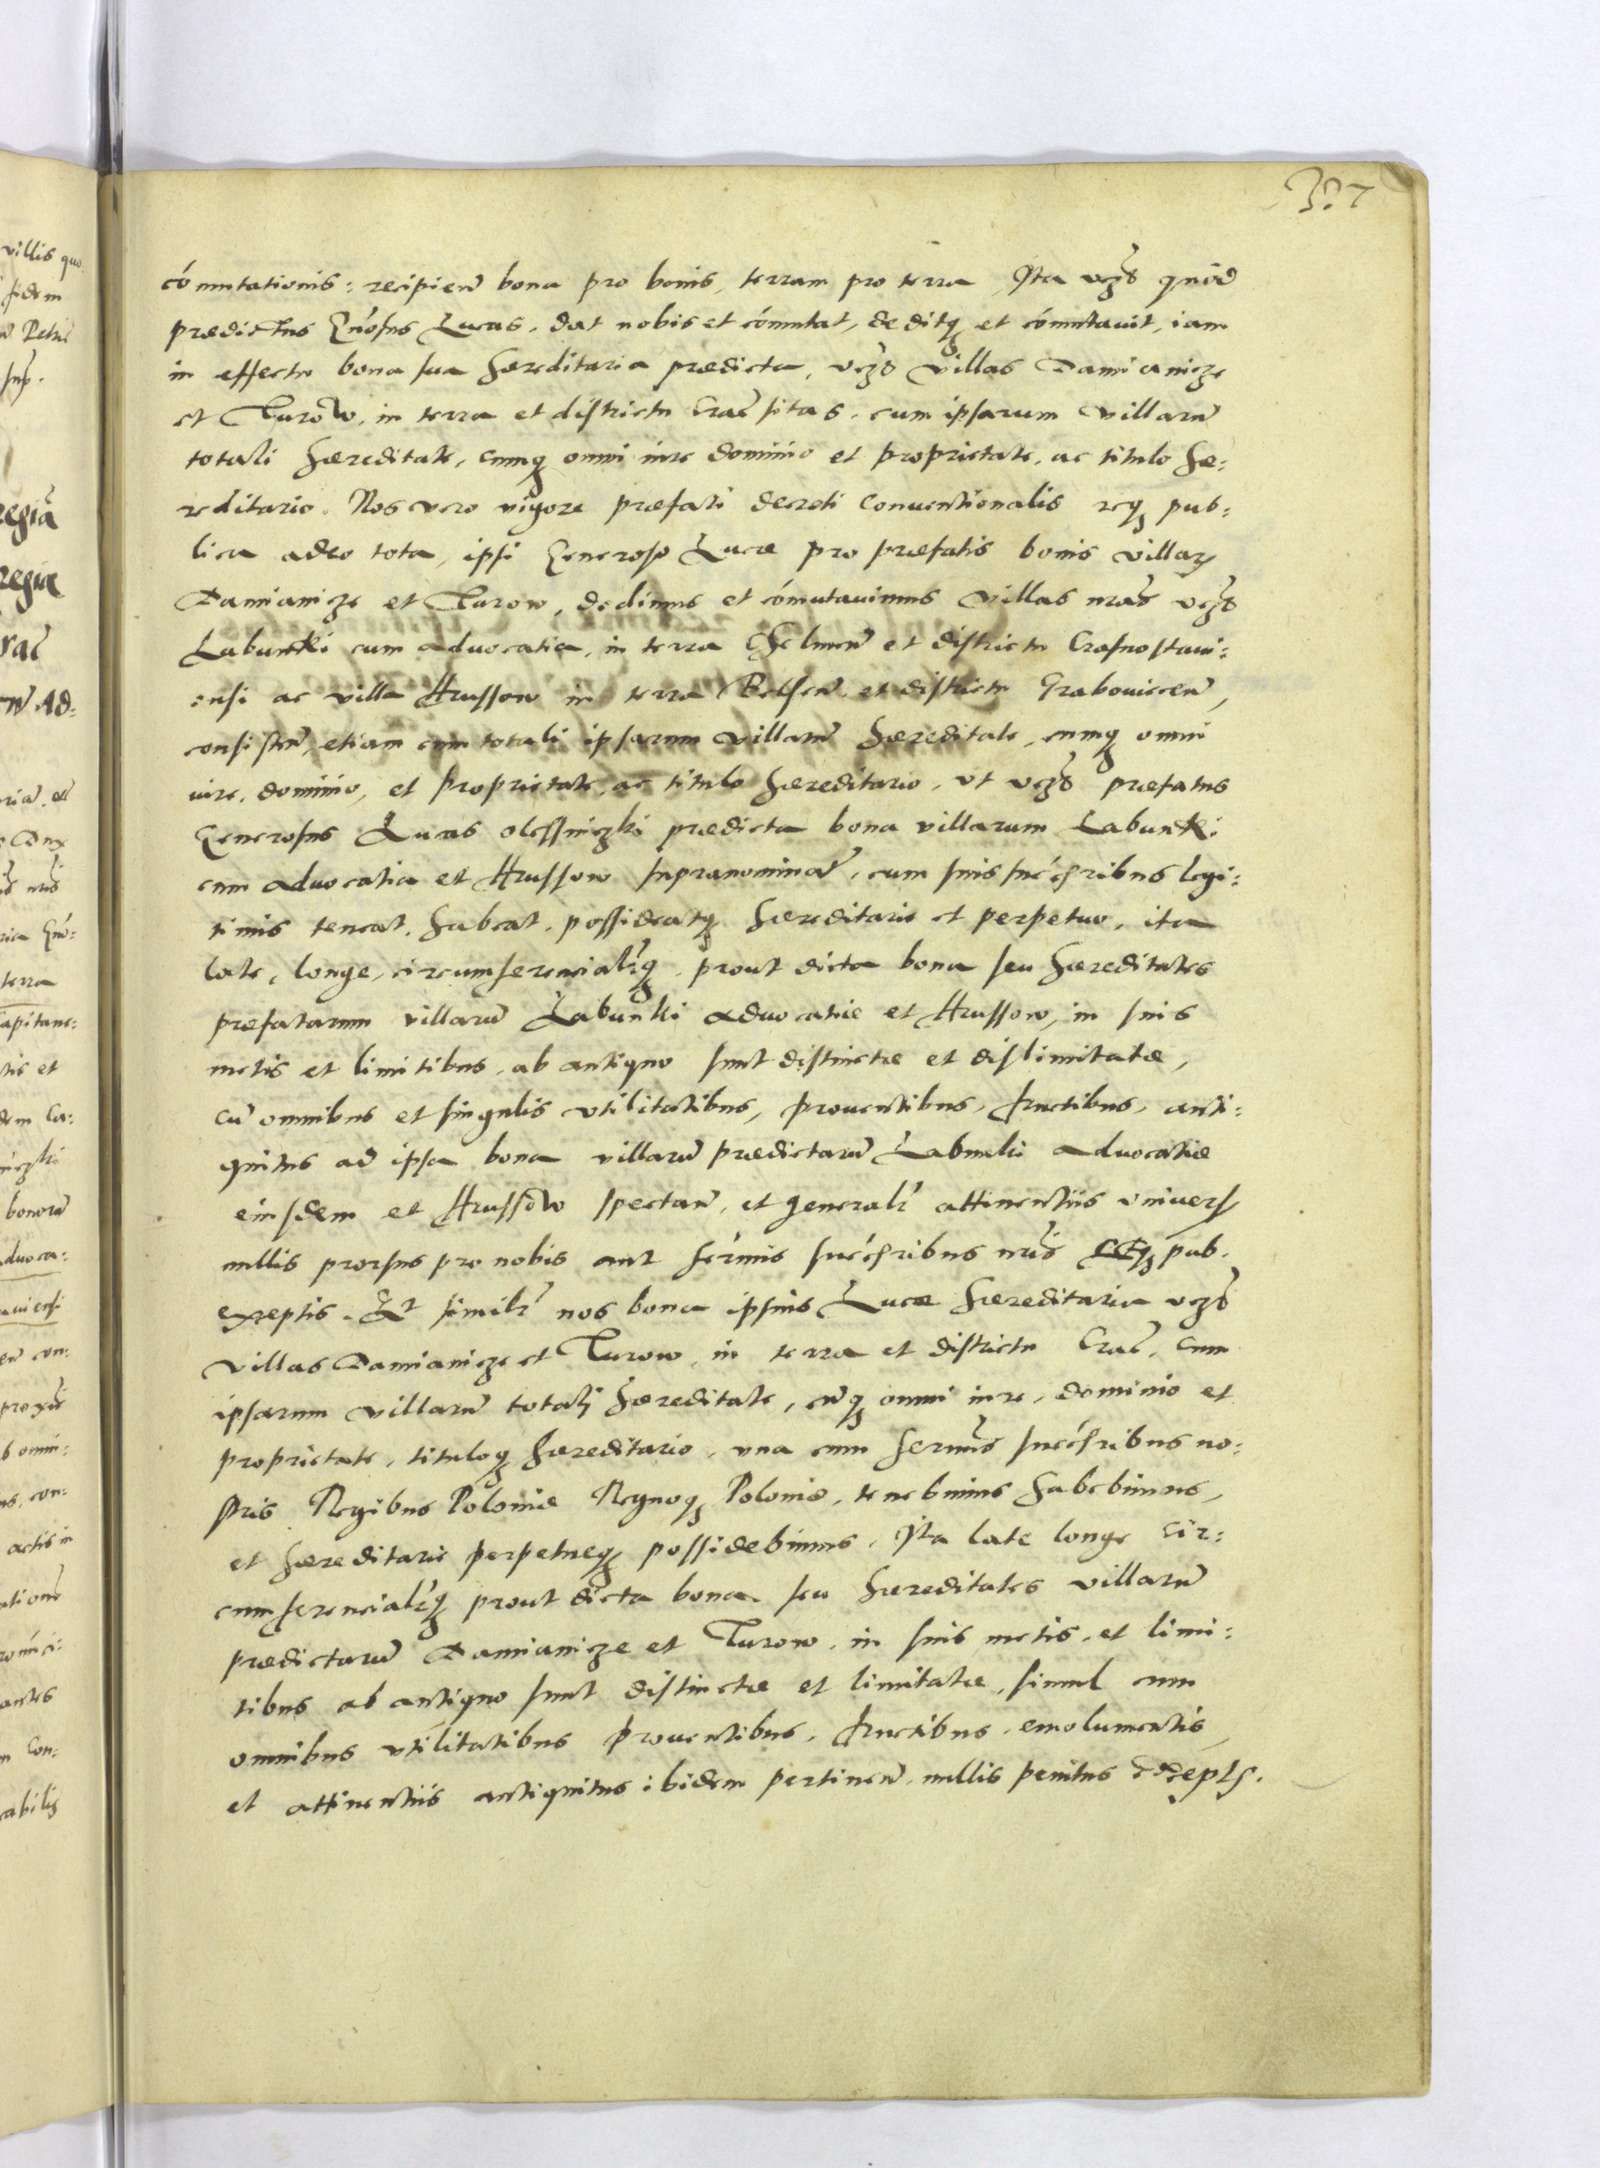 327
cómutationis: recipień bona pro bonis, terram pro terra Ita vczt quod
prædictus Gńosus Lucas, dat nobis et cómutat, deditq et cómutavit, iam
in effectu bona sua hæreditaria prædicta, vczt villas Damianicze
et Turow, in terra et districtu Crac sitas, cum ipsarum villarū
totali hæreditate, cumq omni iure dominio et proprietate, ac titulo hæ:
reditario. Nos vero vigore præfati decreti conventionalis req pub:
lica adeo tota, ipsi Generoso Lucæ pro præfatis bonis villarz
Damianicze et Turow, dedimus et cómutavimus villas nras vczt
Labunki cum advocatia, in terra Chelmeń et districtu Crasnostavi:
ensi ac villa Hrussow in terra Belseń et districtu Grabovieceń,
consisteń, etiam cum totali ipsarum villarū hæreditate, cumq omni
iure, dominio, et proprietate, ac titulo hæreditario, vt vczt præfatus
Generosus Lucas Olessniczki prædicta bona villarum Labunki
cum advocatia et Hrussow supranominat, cum suis succribus legi:
timis teneat, habeat, possideatq hæreditarie et perpetuo, ita
late, longe, circumferencialrq, prout dicta bona seu hæreditates
præfatarum villarū Labunki advocatiæ et Hrussow, in suis
metis et limitibus, ab antiquo sunt distinctæ et dislimitatæ,
cū omnibus et singulis vtilitatibus, proventibus, fructibus, anti:
quitus ad ipsa bona villarū prædictarū Labunki advocatiæ
eiusdem et Hrussow spectań, et generalr attinentiis vnivers
nullis prorsus pro nobis aut sermis succribus nris Req pub.
exeptis. Et similr nos bona ipsius Lucæ hæreditaria vczt
villas Damianicze et Turow, in terra et districtu Crac, cum
ipsarum villarū totali hæreditate, cūq omni iure, dominio et
proprietate, tituloq hæreditario, vna cum sermis succribus no:
stris Regibus Poloniæ Regnoq Poloniæ, tenebimus habebimus,
et hæreditarie perpetueq possidebimus. Ita late longe cir:
cumferencialrq prout dicta bona seu hæreditates villarū
prædictarū Damianicze et Turow, in suis metis, et limi:
tibus ab antiquo sunt distinctæ et limitatæ, simul cum
omnibus vtilitatibus proventibus, fructibus, emolumentis,
et attinentiis antiquitus ibidem pertineń, nullis penitus exceptis.